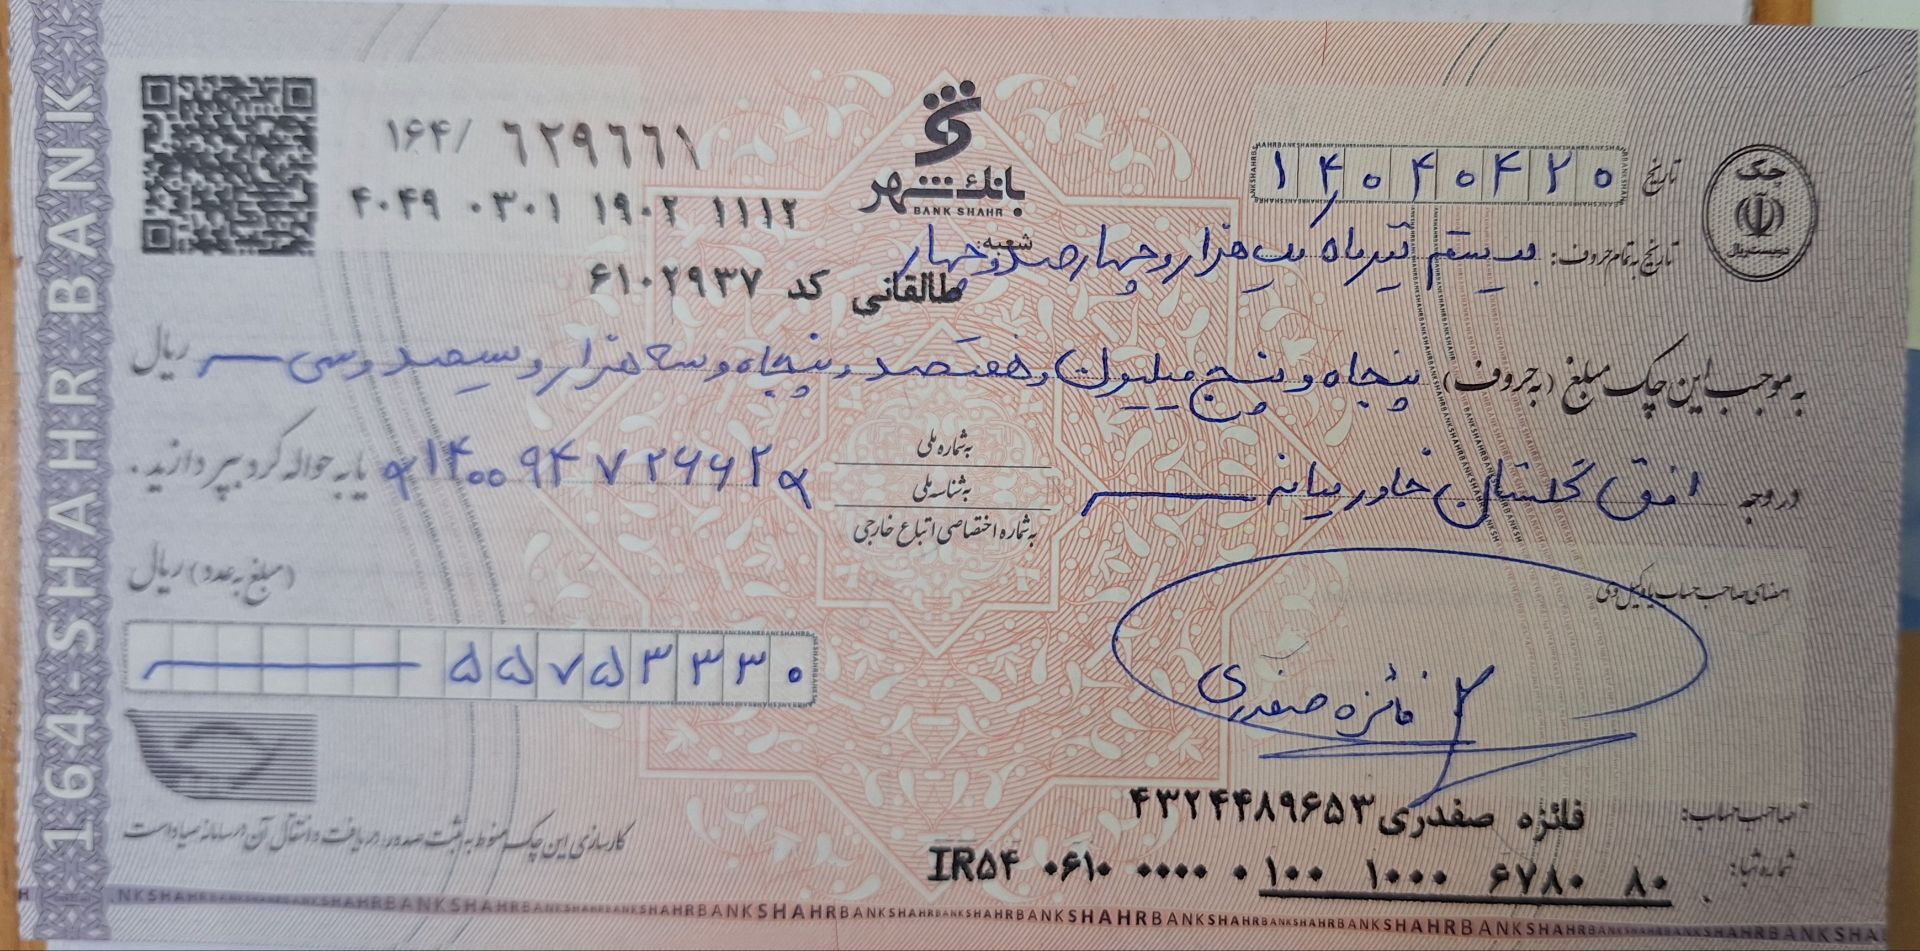 164 SHAHR BANK
۱۶۴/ ٦٢٩٦٦١
۴۰۴۹ ۰۳۰۱ ۱۹۰۲ ۱۱۱۲
بانک شهر
BANK SHAHR
چک
تاریخ ۱۴۰۴۰۴۲۰
تاریخ به تمام حروف: بیستم تیرماه یک هزار و چهارصد و چهار
شعبه:
طالقانی کد ۶۱۰۲۹۳۷
به موجب این چک مبلغ (به حروف) پنجاه و پنج میلیون و هفتصد و پنجاه و سه هزار و سیصد و سی ریال
در وجه افق گلستان خاورمیانه
به شماره ملی
به شناسه ملی
به شماره اختصاصی اتباع خارجی
یا به حواله کرد بپردازید.
(مبلغ به عدد) ریال
۵۵۷۵۳۳۳۰
امضای صاحب حساب یا وکیل وی
فائزه صفدری
صاحب حساب: فائزه صفدری ۴۳۲۴۴۸۹۶۵۳
شماره شبا: IR۵۴ ۰۶۱۰ ۰۰۰۰ ۰۱۰۰ ۱۰۰۰ ۶۷۸۰ ۸۰
کارسازی این چک منوط به ثبت صدور، دریافت و انتقال آن در سامانه صیاد است